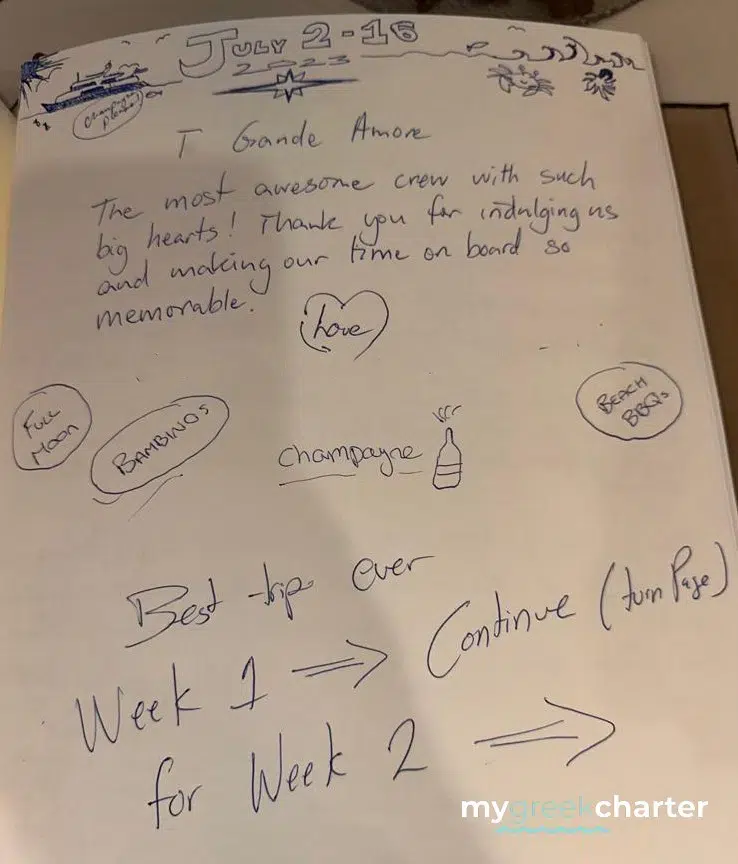 JULY 2-16
2023
Champagne please!
T Grande Amore
The most awesome crew with such
big hearts! Thank you for indulging us
and making our time on board so
memorable.
Love
FULL MOON
BAMBINOS
champagne
BEACH BBQs
Best trip ever
Week 1 ⇒ Continue (turn Page)
for Week 2 ⇒
mygreekcharter